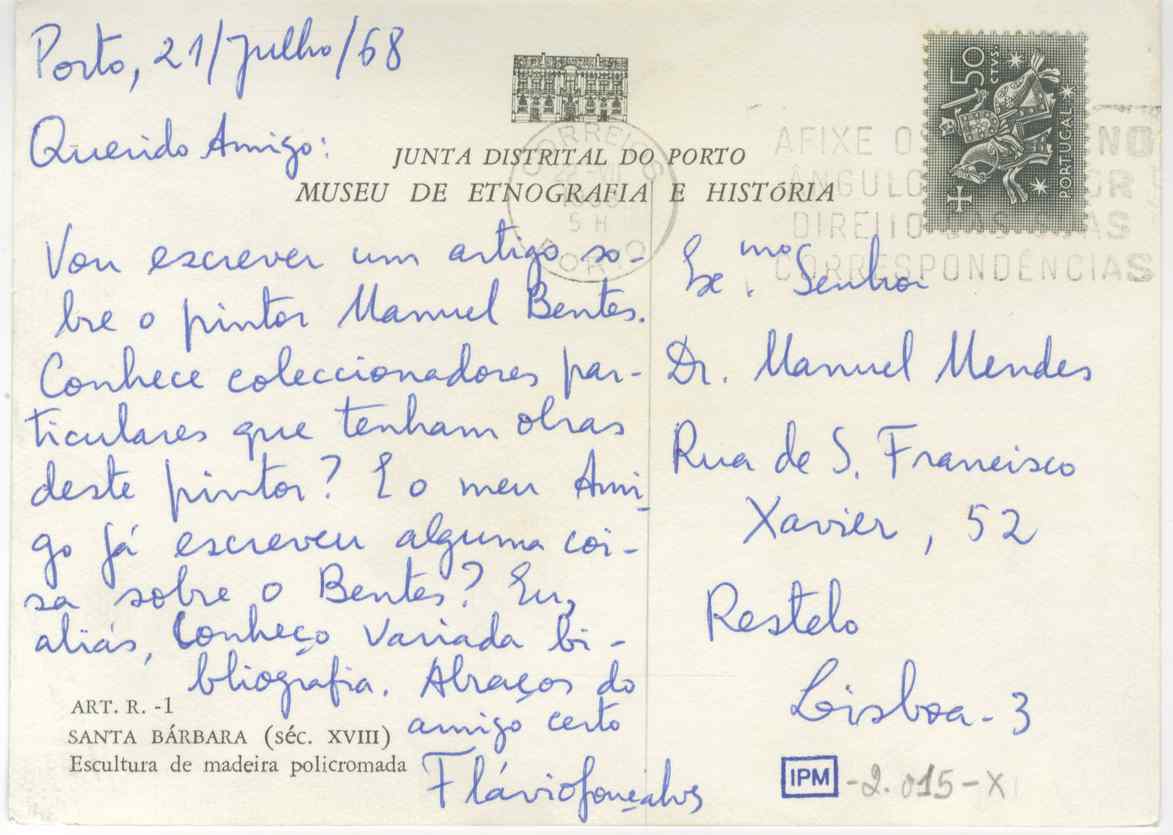 Porto, 21/Julho/68
Querido Amigo:
JUNTA DISTRITAL DO PORTO
MUSEU DE ETNOGRAFIA E HISTÓRIA
Vou escrever um artigo so-
bre o pintor Manuel Bentes.
Conhece coleccionadores par-
ticulares que tenham obras
deste pintor? E o meu Ami-
go já escreveu alguma coi-
sa sobre o Bentes? Eu,
aliás, conheço variada bi-
bliografia. Abraços do
amigo certo
Flávio Gonçalves
ART. R. -1
SANTA BÁRBARA (séc. XVIII)
Escultura de madeira policromada
50
CTVS.
PORTUGAL
CORREIOS
22 -VII
5 H
PORTO
AFIXE OS NO
ÂNGULO
DIREITO DAS SUAS
CORRESPONDÊNCIAS
Ex.mo Senhor
Dr. Manuel Mendes
Rua de S. Francisco
Xavier, 52
Restelo
Lisboa - 3
IPM -2.015-X